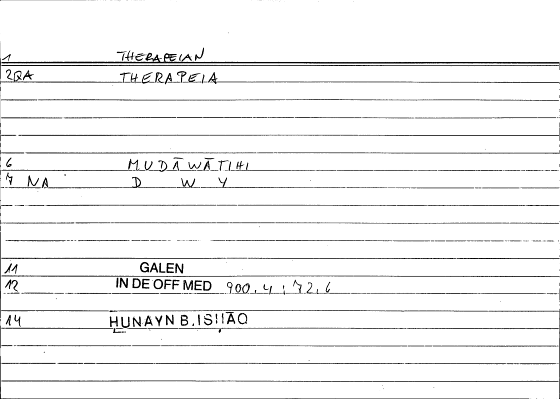 1 THERAPEIAN
2QA THERAPEIA
6 MUDĀWĀTIHI
7 NA D W Y
11 GALEN
12 IN DE OFF MED 900,4; 72,6
14 ḤUNAYN B. ISḤĀQ